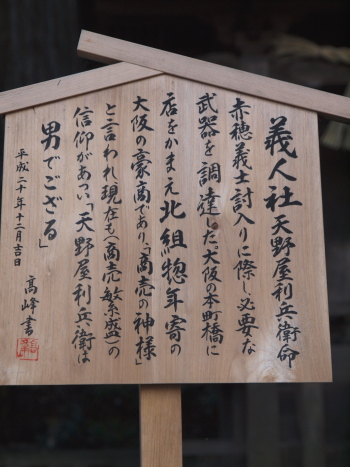 義人社 天野屋利兵衛命
赤穂義士討入りに際し必要な
武器を調達した。大阪の本町橋に
店をかまえ北組惣年寄の
大阪の豪商であり、「商売の神様」
と言われ現在も〈商売繁盛〉の
信仰があつい「天野屋利兵衛は
男でござる」
平成二十年十二月吉日
髙峰書